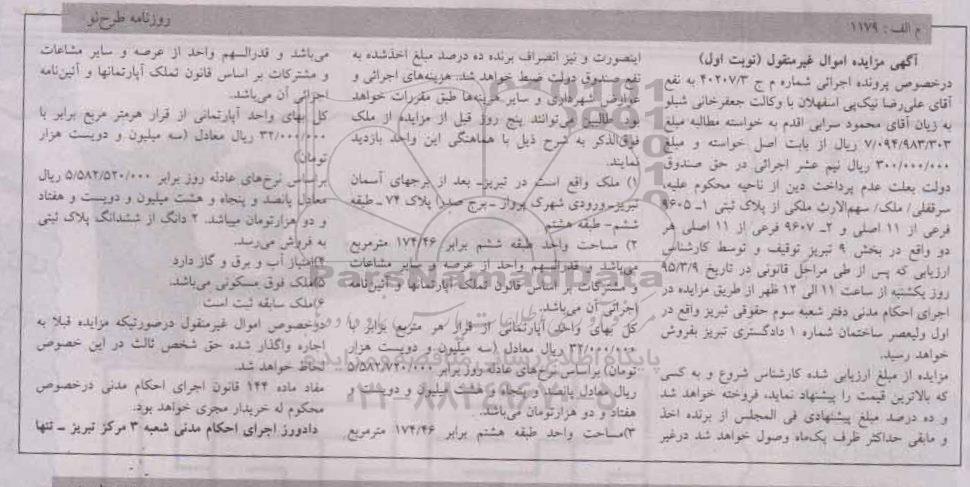 روزنامه طرح‌نو
م الف : ۱۱۷۹
آگهی مزایده اموال غیرمنقول (نوبت اول)
درخصوص پرونده اجرائی شماره م ج ۴۰۲۰۷/۳ به نفع
آقای علی‌رضا نیک‌پی اسفهلان با وکالت جعفرخانی شبلو
به زیان آقای محمود سرابی اقدم به خواسته مطالبه مبلغ
۷/۰۹۴/۹۸۳/۳۰۳ ریال از بابت اصل خواسته و مبلغ
۳۰۰/۰۰۰/۰۰۰ ریال نیم عشر اجرائی در حق صندوق
دولت بعلت عدم پرداخت دین از ناحیه محکوم علیه،
سرقفلی/ ملک/ سهم‌الارث ملکی از پلاک ثبتی ۱ـ ۹۶۰۵
فرعی از ۱۱ اصلی و ۲ـ ۹۶۰۷ فرعی از ۱۱ اصلی هر
دو واقع در بخش ۹ تبریز توقیف و توسط کارشناس
ارزیابی که پس از طی مراحل قانونی در تاریخ ۹۵/۳/۹
روز یکشنبه از ساعت ۱۱ الی ۱۲ ظهر از طریق مزایده در
اجرای احکام مدنی دفتر شعبه سوم حقوقی تبریز واقع در
اول ولیعصر ساختمان شماره ۱ دادگستری تبریز بفروش
خواهد رسید.
مزایده از مبلغ ارزیابی شده کارشناس شروع و به کسی
که بالاترین قیمت را پیشنهاد نماید، فروخته خواهد شد
و ده درصد مبلغ پیشنهادی فی المجلس از برنده اخذ
و مابقی حداکثر ظرف یک‌ماه وصول خواهد شد درغیر
اینصورت و نیز انصراف برنده ده درصد مبلغ اخذشده به
نفع صندوق دولت ضبط خواهد شد. هزینه‌های اجرائی و
عوارض شهرداری و سایر هزینه‌ها طبق مقررات خواهد
بود طالبین می‌توانند پنج روز قبل از مزایده از ملک
فوق‌الذکر به شرح ذیل با هماهنگی این واحد بازدید
نمایند.
۱) ملک واقع است در تبریزـ بعد از برجهای آسمان
تبریزـ ورودی شهرک پرواز ـ برج صدرا پلاک ۷۴ ـ طبقه
ششم- طبقه هشتم
۲) مساحت واحد طبقه ششم برابر ۱۷۴/۴۶ مترمربع
می‌باشد و قدرالسهم واحد از عرصه و سایر مشاعات
و مشترکات بر اساس قانون تملک آپارتمانها و آئین‌نامه
اجرائی آن می‌باشد.
کل بهای واحد آپارتمانی از قرار هر مترمربع برابر با
۳۲/۰۰۰/۰۰۰ ریال معادل (سه میلیون و دویست هزار
تومان) براساس نرخ‌های عادله روز برابر ۵/۵۸۲/۷۲۰/۰۰۰
ریال معادل پانصد و پنجاه و هشت میلیون و دویست و
هفتاد و دو هزارتومان می‌باشد.
۳)مساحت واحد طبقه هشتم برابر ۱۷۴/۴۶ مترمربع
می‌باشد و قدرالسهم واحد از عرصه و سایر مشاعات
و مشترکات بر اساس قانون تملک آپارتمانها و آئین‌نامه
اجرائی آن می‌باشد.
کل بهای واحد آپارتمانی از قرار هرمتر مربع برابر با
۳۲/۰۰۰/۰۰۰ ریال معادل (سه میلیون و دویست هزار
تومان)
براساس نرخ‌های عادله روز برابر ۵/۵۸۲/۵۲۰/۰۰۰ ریال
معادل پانصد و پنجاه و هشت میلیون و دویست و هفتاد
و دو هزارتومان میباشد. ۲ دانگ از ششدانگ پلاک ثبتی
به فروش می‌رسد.
۴)امتیاز آب و برق و گاز دارد
۵)ملک فوق مسکونی می‌باشد.
۶)ملک سابقه ثبت است
درخصوص اموال غیرمنقول درصورتیکه مزایده قبلا به
اجاره واگذار شده حق شخص ثالث در این خصوص
لحاظ خواهد شد.
مفاد ماده ۱۴۴ قانون اجرای احکام مدنی درخصوص
محکوم له خریدار مجری خواهد بود.
دادورز اجرای احکام مدنی شعبه ۳ مرکز تبریز ـ تنها
ParsNamadData
پایگاه اطلاع رسانی مناقصه و مزایده